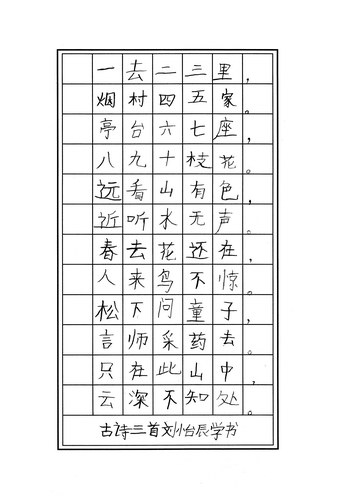 一去二三里，
烟村四五家。
亭台六七座，
八九十枝花。
远看山有色，
近听水无声。
春去花还在，
人来鸟不惊。
松下问童子，
言师采药去。
只在此山中，
云深不知处。
古诗三首刘怡辰学书